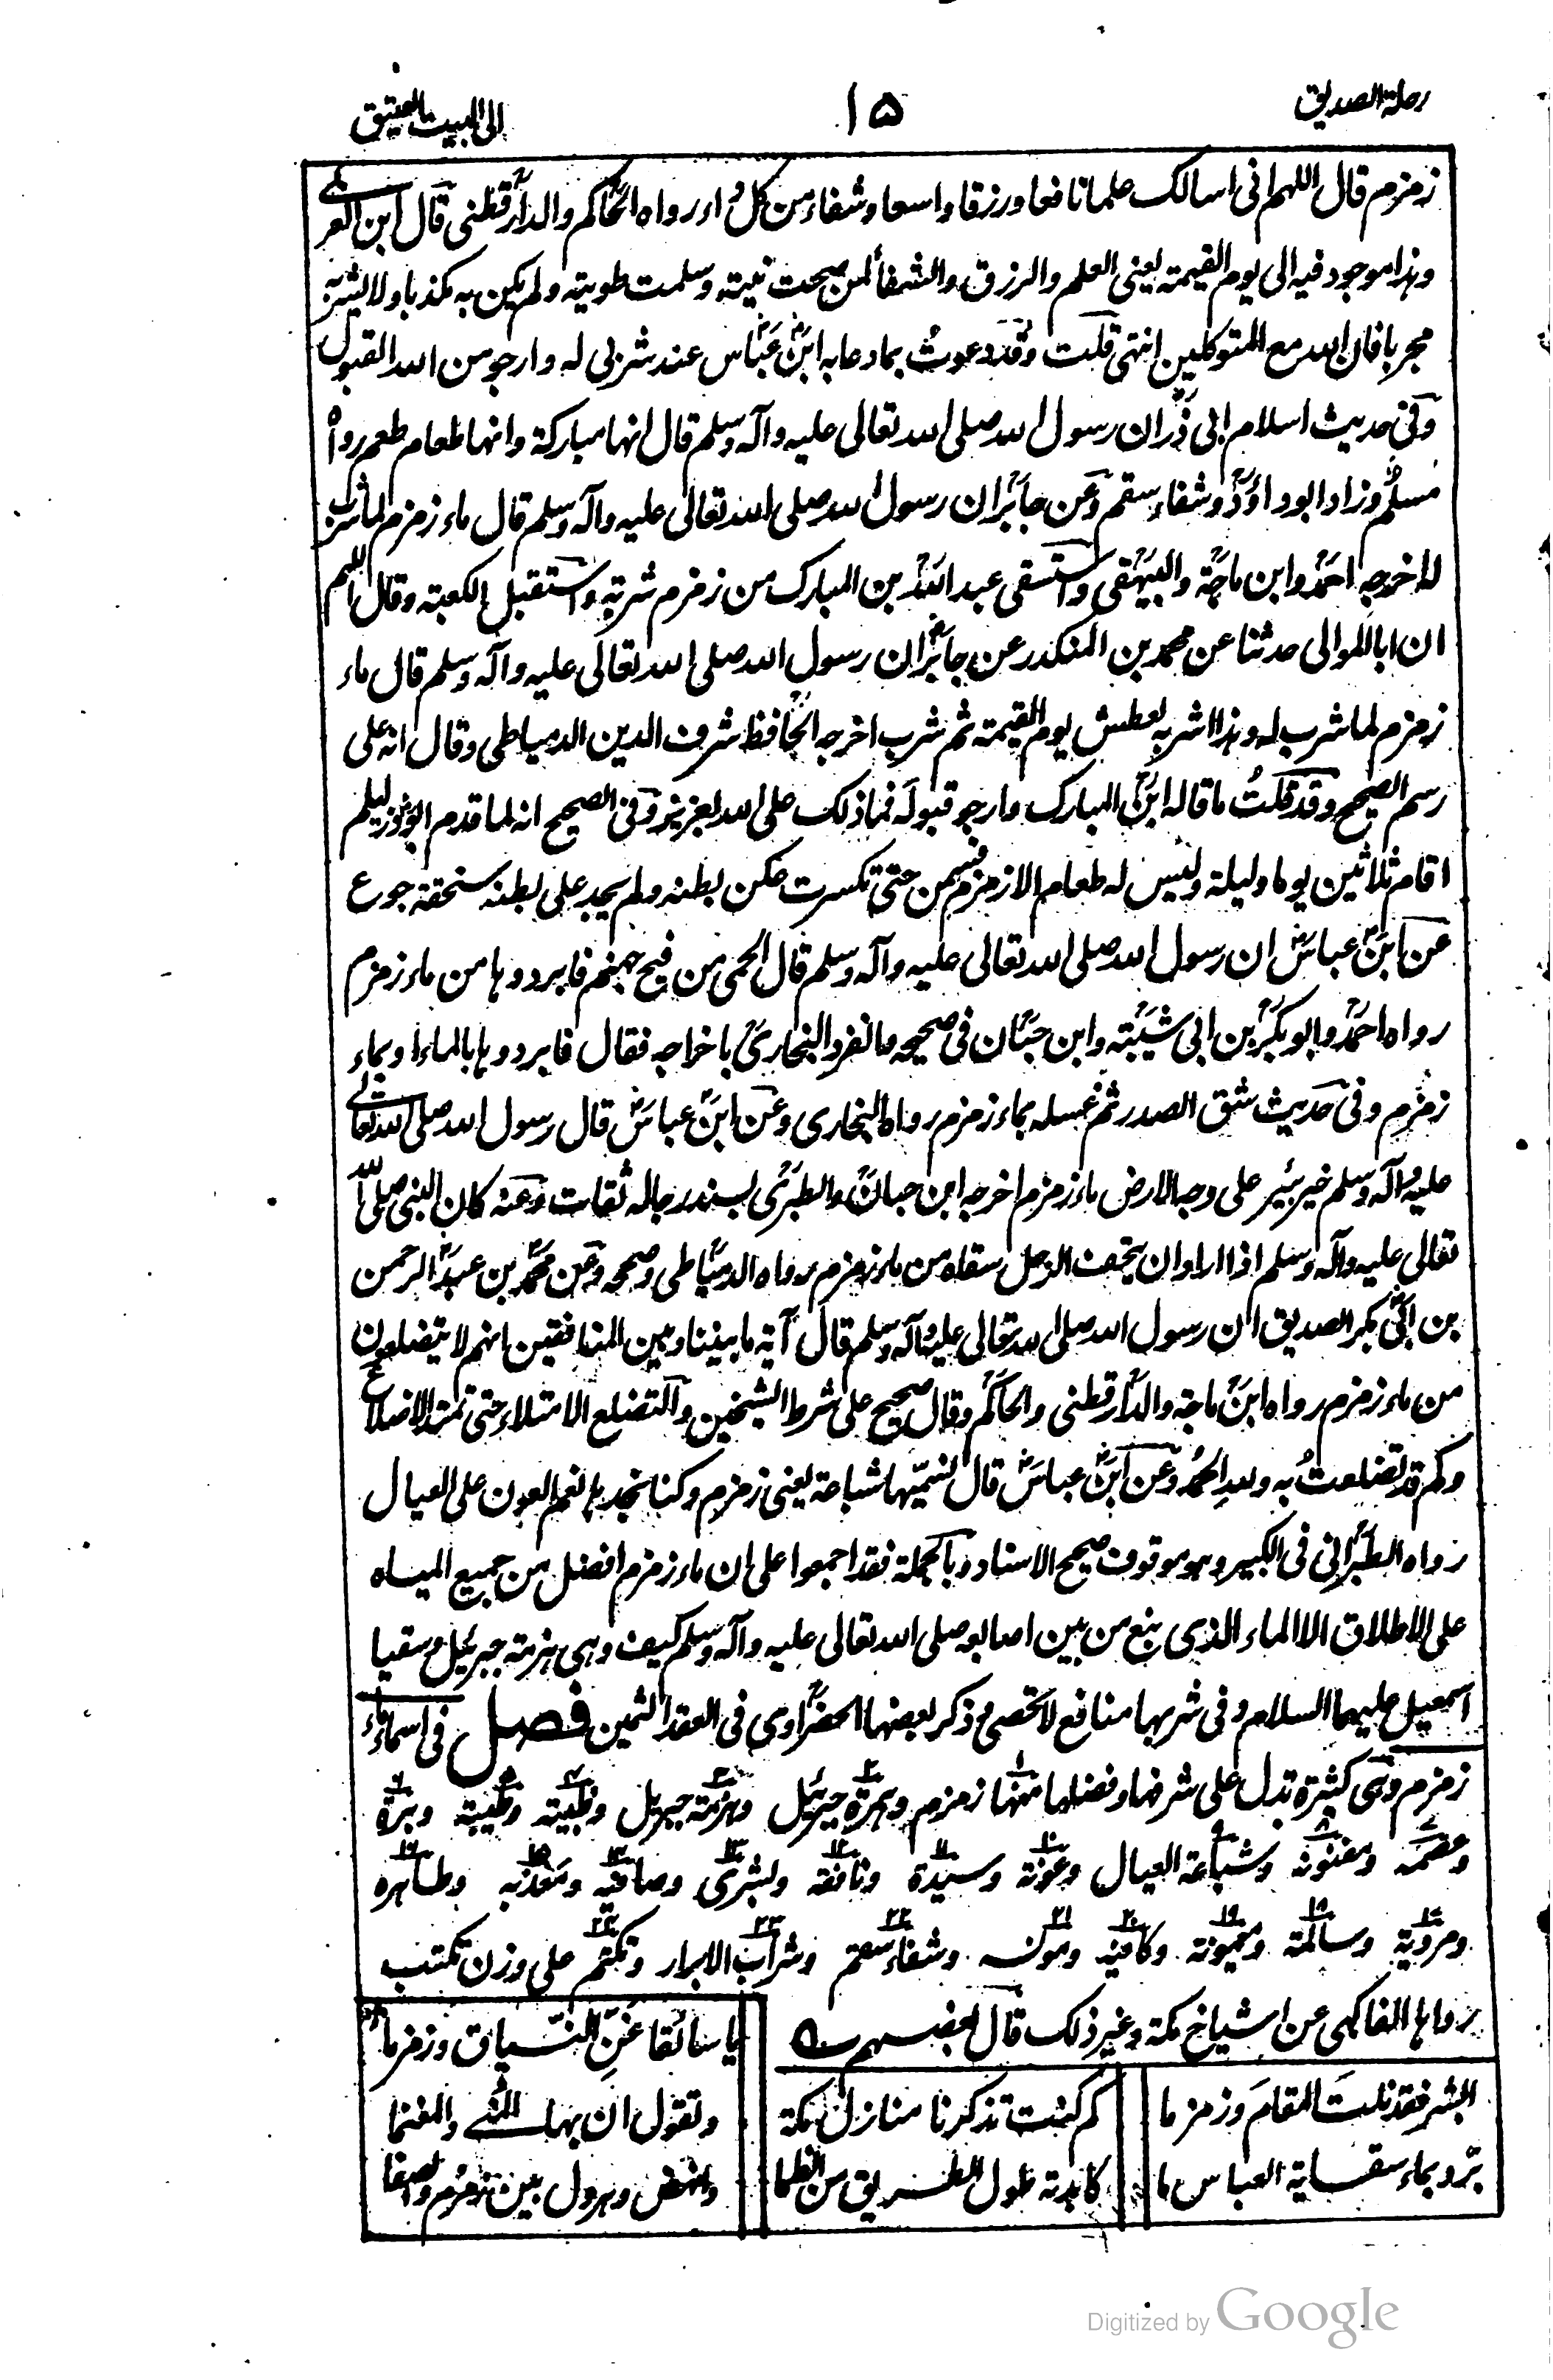 رحلة الصديق
١٥
الى البيت العتيق
زمزم قال اللهم انى اسالك علما نافعا ورزقا واسعا وشفاء من كل داء رواه الحاكم والدارقطنى قال ابن العربى
وهذا موجود فيه الى يوم القيمة يعنى العلم والرزق والشفاء لمن صحت نيته وسلمت طويته ولم يكن به مكذبا ولا لشربه
مجربا فان الله مع المتوكلين انتهى قلت وقد دعوت بما دعا به ابن عباس عند شربى له وارجو من الله القبول
وفى حديث اسلام ابى ذر ان رسول الله صلى الله تعالى عليه وآله وسلم قال انها مباركة وانها طعام طعم رواه
مسلم وزاد ابو داود وشفاء سقم وعن جابر ان رسول الله صلى الله تعالى عليه وآله وسلم قال ماء زمزم لما شرب
له اخرجه احمد وابن ماجة والبيهقى واستسقى عبد الله بن المبارك من زمزم شربة واستقبل الكعبة وقال اللهم
ان ابا الموالى حدثنا عن محمد بن المنكدر عن جابر ان رسول الله صلى الله تعالى عليه وآله وسلم قال ماء
زمزم لما شرب له وهذا اشربه لعطش يوم القيمة ثم شرب اخرجه الحافظ شرف الدين الدمياطى وقال انه على
رسم الصحيح وقد قلت ما قاله ابن المبارك وارجو قبوله فما ذلك على الله بعزيز وفى الصحيح انه لما قدم ابو ذر ليسلم
اقام ثلاثين يوما وليلة وليس له طعام الا زمزم فسمن حتى تكسرت عكن بطنه ولم يجد على بطنه سخفة جوع
عن ابن عباس ان رسول الله صلى الله تعالى عليه وآله وسلم قال الحمى من فيح جهنم فابردوها من ماء زمزم
رواه احمد وابو بكر بن ابى شيبة وابن حبان فى صحيحه وانفرد البخارى باخراجه فقال فابردوها بالماء او بماء
زمزم وفى حديث شق الصدر ثم غسله بماء زمزم رواه البخارى وعن ابن عباس قال رسول الله صلى الله تعالى
عليه وآله وسلم خير بئر على وجه الارض ماء زمزم اخرجه ابن حبان والطبرى بسند رجاله ثقات وعنه كان النبى صلى الله
تعالى عليه وآله وسلم اذا اراد ان يتحف الرجل سقاه من ماء زمزم رواه الدمياطى وصححه وعن محمد بن عبد الرحمن
بن ابى بكر الصديق ان رسول الله صلى الله تعالى عليه وآله وسلم قال آية ما بيننا وبين المنافقين انهم لا يتضلعون
من ماء زمزم رواه ابن ماجة والدارقطنى والحاكم وقال صحيح على شرط الشيخين والتضلع الامتلاء حتى تمتد الاضلاع
وكم قد تضلعت به ولله الحمد وعن ابن عباس قال نسميها شباعة يعنى زمزم وكنا نجدها نعم العون على العيال
رواه الطبرانى فى الكبير وهو موقوف صحيح الاسناد وبالجملة فقد اجمعوا على ان ماء زمزم افضل من جميع المياه
على الاطلاق الا الماء الذى نبع من بين اصابعه صلى الله تعالى عليه وآله وسلم كيف وهى هزمة جبرئيل وسقيا
اسمعيل عليهما السلام وفى شربها منافع لا تحصى ذكر بعضها الحضراوى فى العقد الثمين فصل فى اسماء ماء
زمزم وهى كثيرة تدل على شرفها وفضلها منها زمزم وهمزة جبرئيل وهزمة جبريل وظبية وطيبة وبرة
وعصمة ومضنونة وشباعة العيال وعونة وسيدة ونافعة وبشرى وصافية ومعذبة وطاهرة
ومروية وسالمة وميمونة وكافية ومونسة وشفاء سقم وشراب الابرار وتكتم على وزن تكتب
رواها الفاكهى عن اشياخ مكة وغير ذلك قال بعضهم
يا سائقا عن النياق وزمزما
ابشر فقد نلت المقام وزمزما كم كنت تذكرنا منازل مكة وتقول ان بها المنى والمغنما
برد بماء سقاية العباس ما كابدته طول الطريق من الظما وانهض وهرول بين زمزم والصفا
Digitized by Google